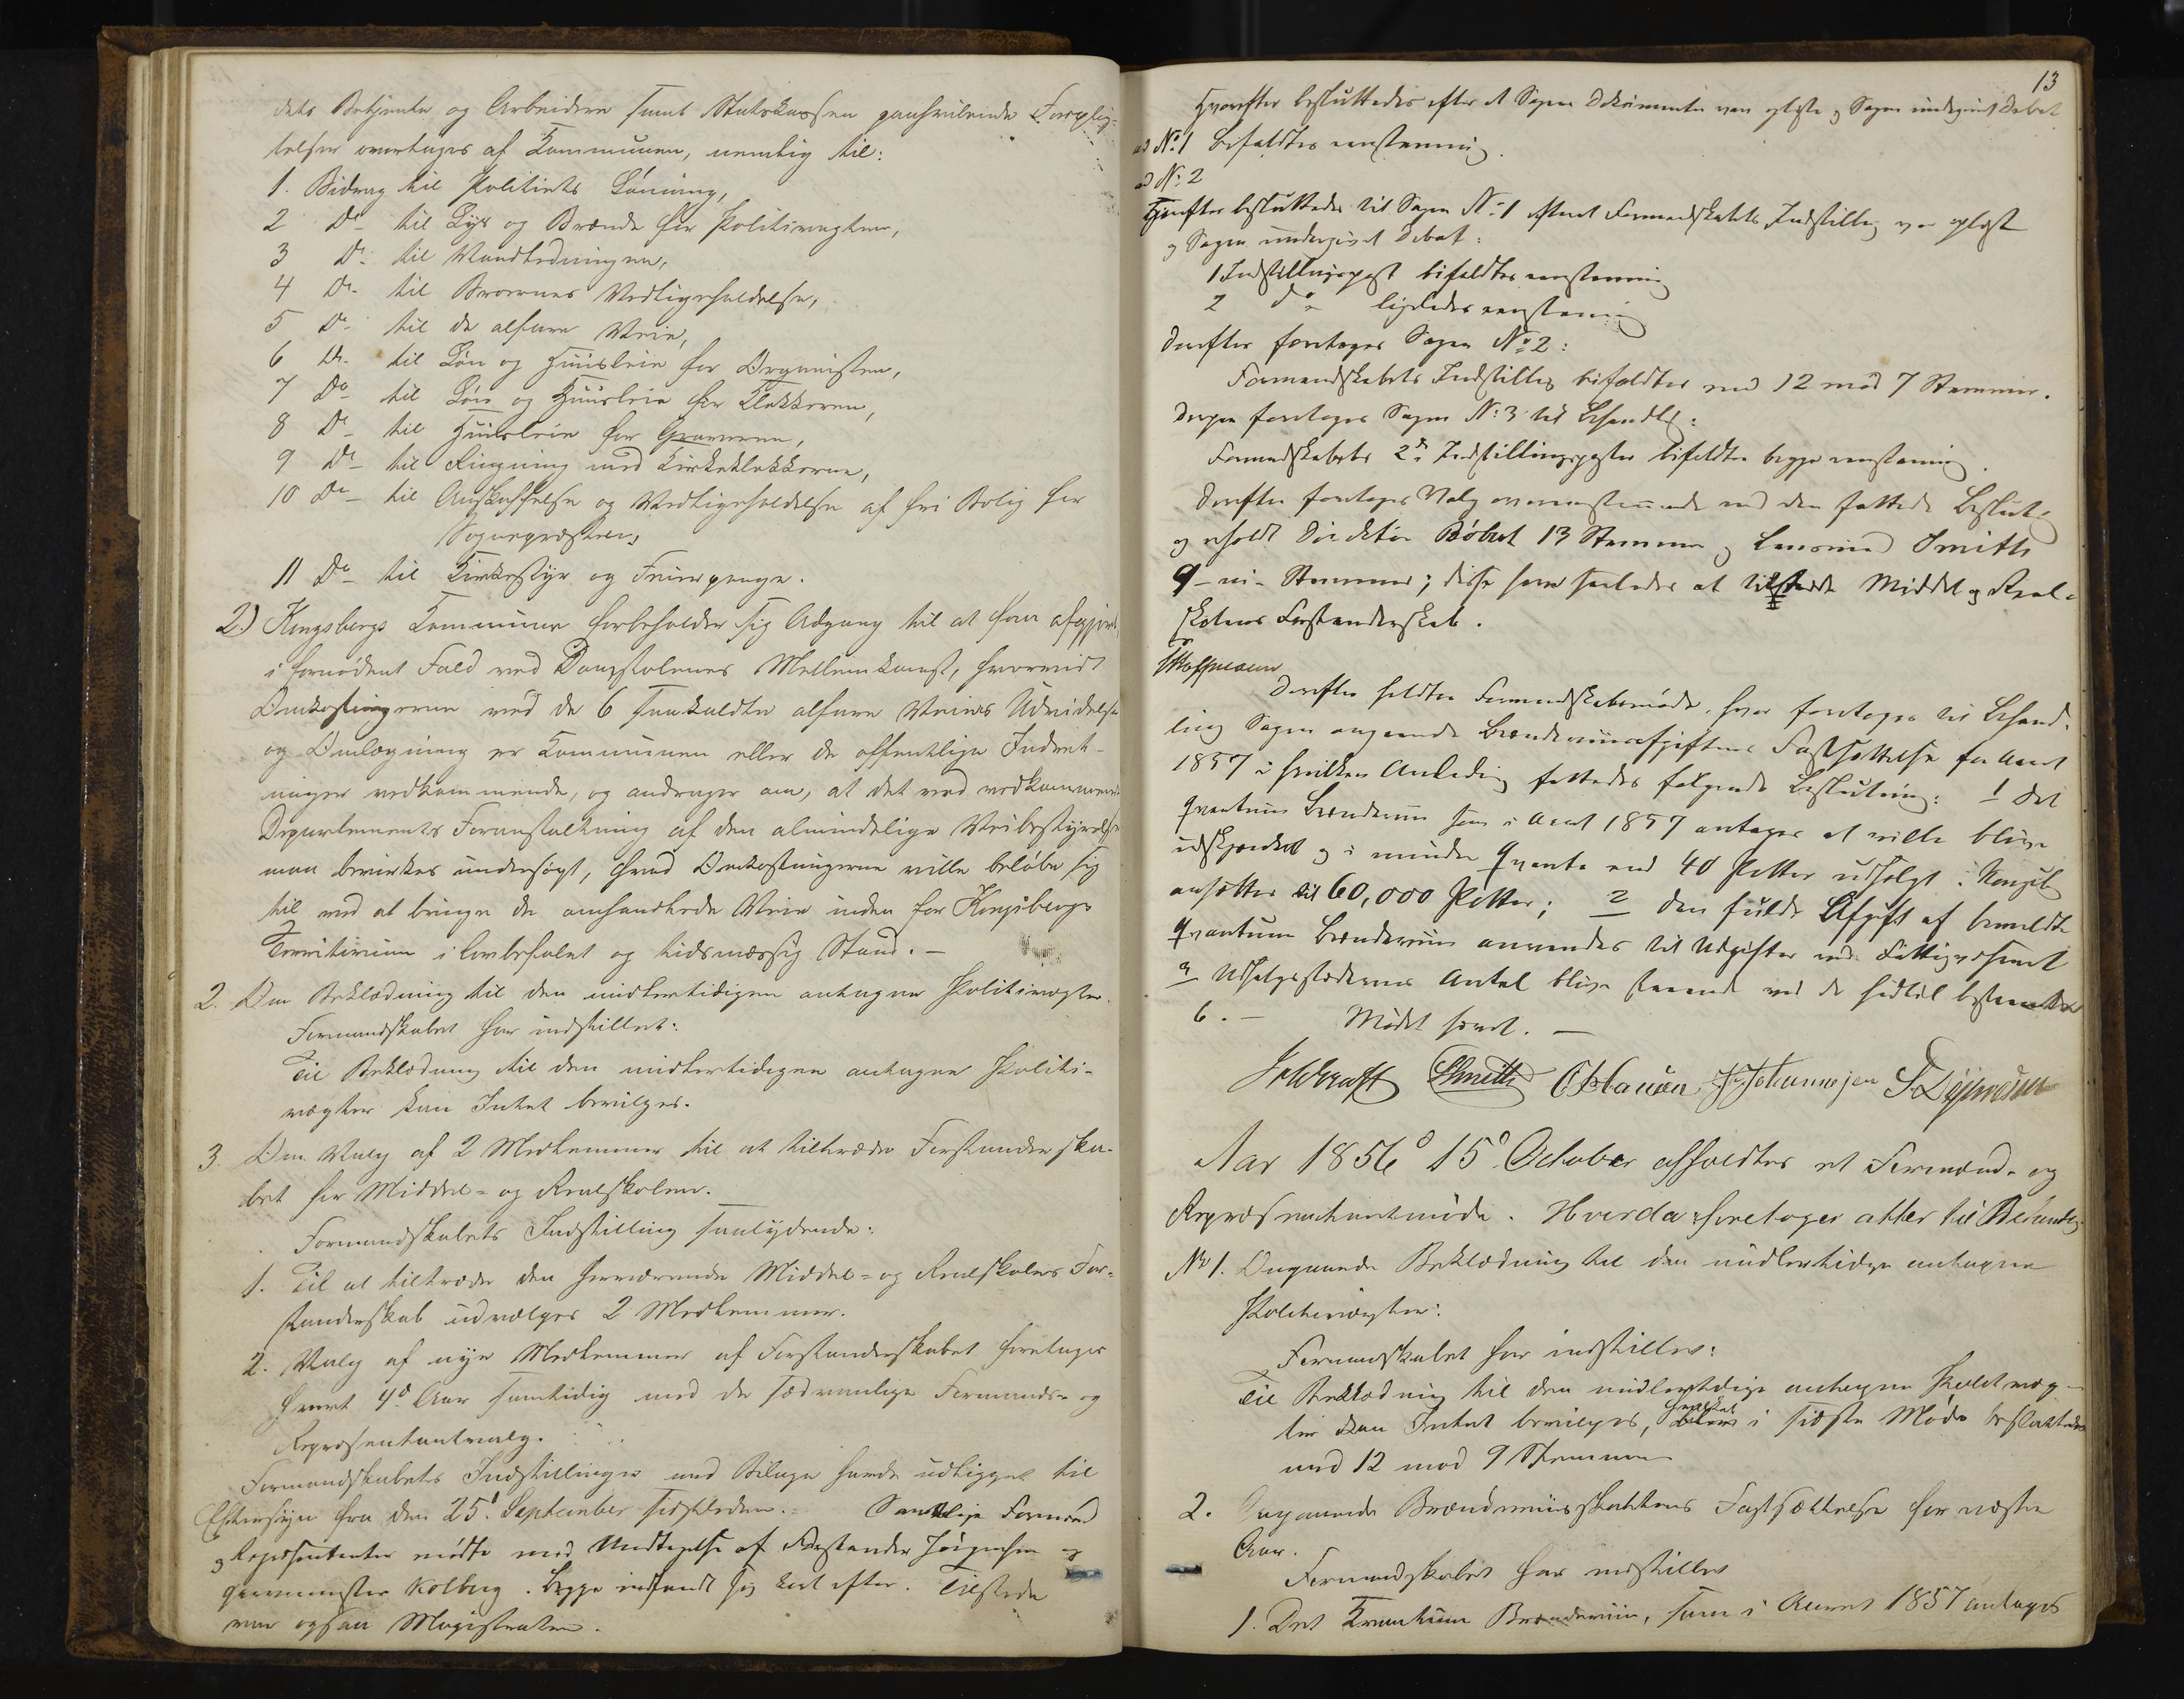 dets Betjente og Arbeidere samt Statskassen paahvilende Forplig-
telser overtages af Kommunen, nemlig til:
1. Bidrag til Politiets Lønning,
2 Do til Lys og Brænde for Politivagten,
3 Do til Vandledningen,
4 Do til Broernes Vedligeholdelse,
5 Do til de alfare Veie,
6 Do til Løn og Huusleie for Organisten,
7 Do til Løn og Huusleie for Klokkeren,
8 Do til Huusleie for Graveren,
9 Do til Ringning med Kirkeklokkerne,
10 Do til Anskaffelse og Vedligeholdelse af fri Bolig for
Sognepræsten,
11 Do til Kirkestyr og Feierpenge.
2.) Kongsbergs Kommune forbeholder sig Adgang til at faa afgjort,
i fornødent Fald ved Domstolenes Mellemkomst, hvorvidt
Omkostningerne ved de 6 saakaldte alfare Veies Udvidelse
og Omlægning er Kommunen eller de offentlige Indret-
ninger vedkommende, og andrager om, at det ved vedkommende
Departements Foranstaltning af den almindelige Veibestyrelse
maa bevirkes undersøgt, hvad Omkostningerne ville beløbe sig
til ved at bringe de omhandlede Veie inden for Kongsbergs
Territorium i lovbefalet og tidsmæssig Stand. -
2. Om Beklædning til den midlertidigen antagne Politivægter.
Formandskabet har indstillet:
Til Beklædning til den midlertidigen antagne Politi-
vægter kan Intet bevilges.
3. Om Valg af 2 Medlemmer til at tiltræde Forstanderska-
bet for Middel- og Realskolen.
Formandskabets Indstilling saalydende:
1. Til at tiltræde den herværende Middel- og Realskoles For-
standerskab udvælges 2 Medlemmer.
2. Valg af nye Medlemmer af Forstanderskabet foretages
hvert 4de Aar samtidig med de sædvanlige Formands- og
Repræsentantvalg.
Formandskabets Indstillinger med Bilage havde udligget til
Eftersyn fra den 25de September sidstleden. - Samtlige Formænd
og Repræsentanter mødte med Undtagelse af Forstander Jørgensen og
Kolberg. Begge indfandt sig kort efter. Tilstede
var ogsaa Magistraten.
13
Hvorefter besluttedes efter at Sagens Dokumenter vare oplæste og Sagen undergivet Debat
ad No 1 bifaldtes eenstemmig.
ad No 2
Hvorefter besluttedes til Sagen No 1 efterat Formandskabets Indstilling var oplæst
og Sagen undergivet Debat:
1 Indstillingspost bifaldtes eenstemmig
2 do ligeledes eenstemmig
Derefter foretoges Sagen No 2:
Formandskabets Indstilling bifaldtes med 12 mod 7 Stemmer.
Derpaa foretoges Sagen No 3 til Behandling:
Formandskabets 2de Indstillingsposter bifaldtes begge eenstemmig.
Derefter foretoges Valg overensstemmende med den fattede Beslutning
og erholdt Direktør Bøbert 13 Stemmer og Smith
9 - ni - Stemmer; disse have saaledes at tiltræde Middel og Real-
skolens Forstanderskab.
Derefter holdtes Formandskabsmøde, hvor foretoges til Behand-
ling Sagen angaaende Brændeviinsafgiftens Fastsættelse for Aaret
1857 i hvilken Anledning fattedes følgende Beslutning: 1 Det
Qvantum Brændeviin som i Aaret 1857 antages at ville blive
udskjænket og i mindre Qvanta end 40 Potter udsolgt i Kongsberg
ansættes til 60,000 Potter; 2 den fulde Afgift af bemeldte
Qvantum Brændeviin anvendes til Udgifter ved Fattigvæsenet
3 Udsalgsstedernes Antal blive staaende ved de hidtil bestemte
6. - Mødet hævet. -
Smith J. Johannesen
Aar 1856 d 15d October afholdtes et Formænd- og
Repræsentantmøde. Hvorda foretoges atter til Behandling
No 1. Angaaende Beklædning til den midlertidige antagne
Politivægter:
Formandskabet har indstillet:
Til Beklædning til den midlertidige antagne Politivæg-
ter kan Intet bevilges, hvilket i sidste Møde besluttedes
med 12 mod 9 Stemmer
2. Angaaende Brændeviinsskattens Fastsættelse for næste
Aar.
Formandskabet har indstillet
1. Det Kvantum Brændeviin, som i Aaret 1857 antages